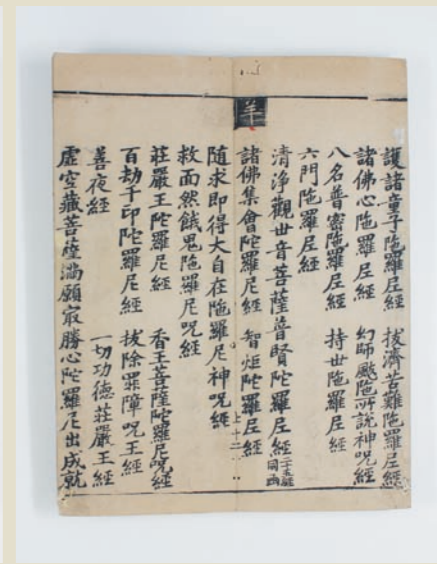 羊
護諸童子陁羅尼經 拔濟苦難陁羅尼經
諸佛心陁羅尼經 幻師颰陁所說神呪經
八名普密陁羅尼經 持世陁羅尼經
六門陁羅尼經
清淨觀世音菩薩普賢陀羅尼經二十五經同函
諸佛集會陀羅尼經 智炬陀羅尼經
隨求即得大自在陁羅尼神呪經
救面然餓鬼陁羅尼呪經
莊嚴王陀羅尼經 香王菩薩陀羅尼呪經
百劫千印陀羅尼經 拔除罪障呪王經
善夜經 一切功德莊嚴王經
虛空藏菩薩滿願㝡勝心陀羅尼出成就